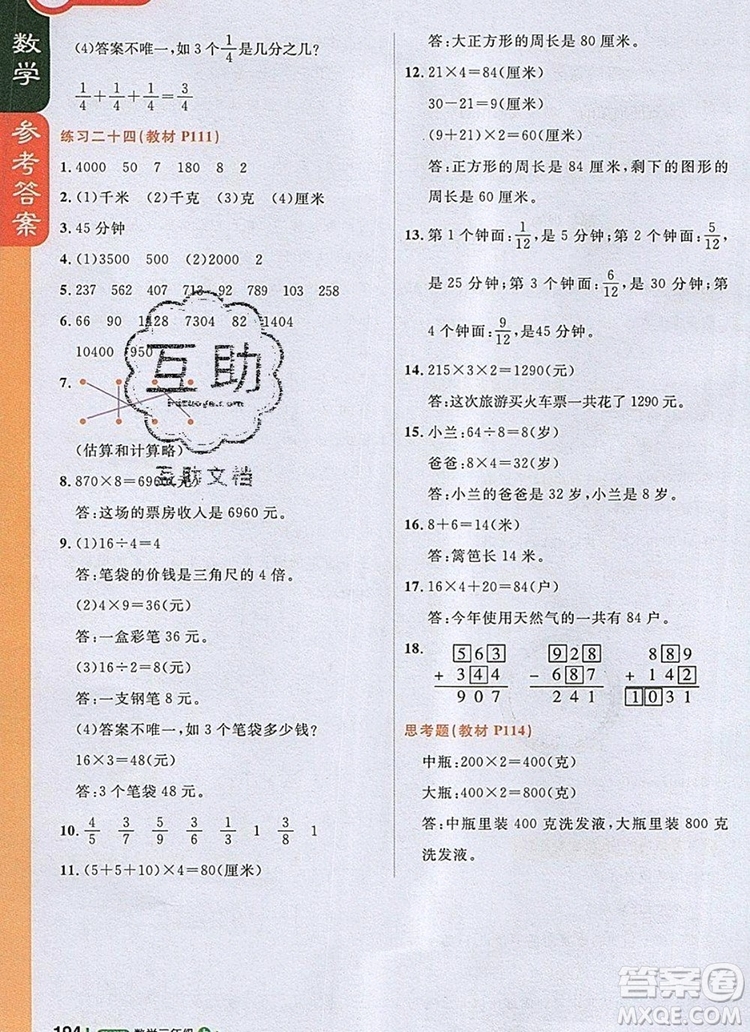 数学
参考答案
(4)答案不唯一,如 3 个 1/4 是几分之几?
1/4+1/4+1/4=3/4
练习二十四(教材 P111)
1. 4000 50 7 180 60
2. (1)千米 (2)千克 (3)克 (4)厘米
3. 45 分钟
4. (1)3500 (2)2000 (3)2
5. 237 562 407 630 123 358
6. 66 90 1928 7304 180 1264
10400 950
7.
(估算和计算略)
8. 870×8=6960(元)
答:这场的票房收入是 6960 元。
9. (1)16÷4=4
答:笔袋的价钱是三角尺的 4 倍。
(2)4×9=36(元)
答:一盒彩笔 36 元。
(3)16÷2=8(元)
答:一支钢笔 8 元。
(4)答案不唯一,如 3 个笔袋多少钱?
16×3=48(元)
答:3 个笔袋 48 元。
10. 4/5 7/9 3/8 1/4 1 3/8 1
11. (5+5+10)×4=80(厘米)
答:大正方形的周长是 80 厘米。
12. 21×4=84(厘米)
30-21=9(厘米)
(9+21)×2=60(厘米)
答:正方形的周长是 84 厘米,剩下的图形的
周长是 60 厘米。
13. 第 1 个钟面:1/12,是 5 分钟;第 2 个钟面:5/12,
是 25 分钟;第 3 个钟面:6/12,是 30 分钟;第
4 个钟面:9/12,是45 分钟。
14. 215×3×2=1290(元)
答:这次旅游买火车票一共花了 1290 元。
15. 小兰:64÷8=8(岁)
爸爸:8×4=32(岁)
答:小兰的爸爸是 32 岁,小兰是 8 岁。
16. 8+6=14(米)
答:篱笆长 14 米。
17. 16×4+20=84(户)
答:今年使用天然气的一共有 84 户。
18. 563 928 889
+344 -687 +142
907 241 1031
思考题(教材 P114)
中瓶:200×2=400(克)
大瓶:400×2=800(克)
答:中瓶里装 400 克洗发液,大瓶里装 800 克
洗发液。
互助
互助文档
答案圈
MXQE.COM
194
数学三年级 上